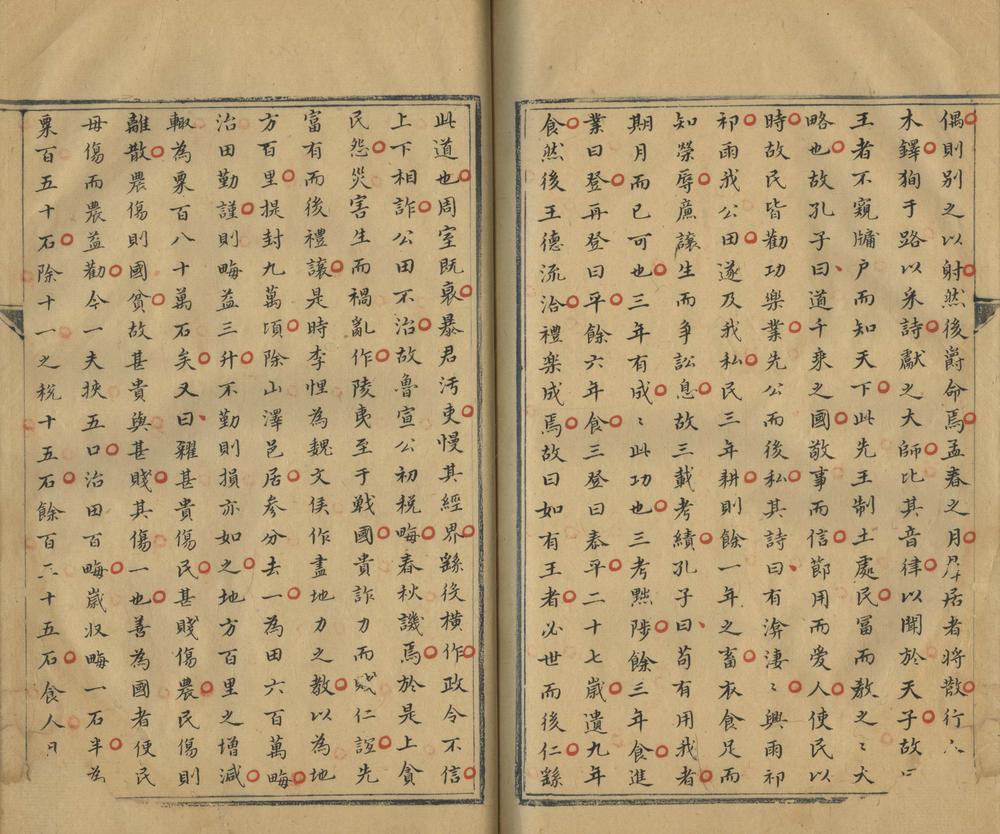 偶則别之以射然後爵命焉孟春之月居者將散行人
木鐸狥于路以采詩獻之大師比其音律以聞於天子故曰
王者不窺牖户而知天下此先王制土處民冨而教之〻大
略也故孔子曰道千乘之國敬事而信節用而愛人使民以
時故民皆勸功樂業先公而後私其詩曰有渰凄〻興雨祁
祁雨我公田遂及我私民三年耕則餘一年之畜衣食足而
知榮辱亷讓生而争訟息故三載考績孔子曰苟有用我者
期月而已可也三年有成〻此功也三考黜陟餘三年食進
業曰登再登曰平餘六年食三登曰泰平二十七歳遺九年
食然後王德流洽禮樂成焉故曰如有王者必世而後仁繇
此道也周室既衰暴君汚吏慢其經界繇役横作政令不信
上下相詐公田不治故魯宣公初税畮春秋譏焉於是上貪
民怨災害生而禍亂作陵夷至于戰國貴詐力而賤仁誼先
富有而後禮讓是時李悝為魏文侯作盡地力之教以為地
方百里提封九萬頃除山澤邑居參分去一為田六百萬畮
治田勤謹則畮益三升不勤則損亦如之地方百里之增減
輙為粟百八十萬石矣又曰糴甚貴傷民甚賤傷農民傷則
離散農傷則國貧故甚貴與甚賤其傷一也善為國者使民
毋傷而農益勸今一夫挾五口治田百畮歳収畮一石半為
粟百五十石除十一之税十五石餘百三十五石食人月